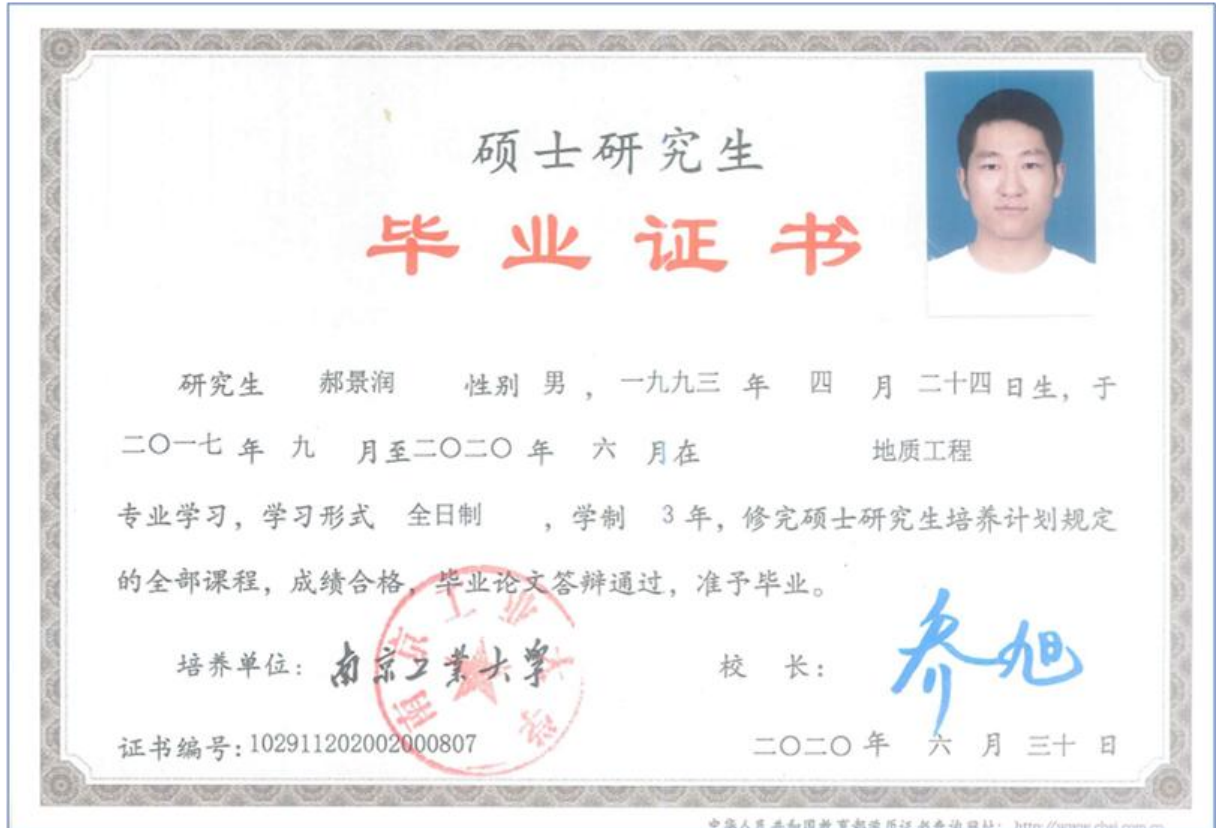 硕士研究生
毕业证书
研究生 郝景润 性别 男 ，一九九三 年 四 月 二十四 日生，于
二〇一七 年 九 月至二〇二〇 年 六 月在 地质工程
专业学习，学习形式 全日制 ，学制 3 年，修完硕士研究生培养计划规定
的全部课程，成绩合格，毕业论文答辩通过，准予毕业。
培养单位：南京工业大学 校 长：乔旭
南京工业大学
证书编号：102911202002000807 二〇二〇 年 六 月 三十 日
中华人民共和国教育部学历证书查询网址：http://www.chsi.com.cn